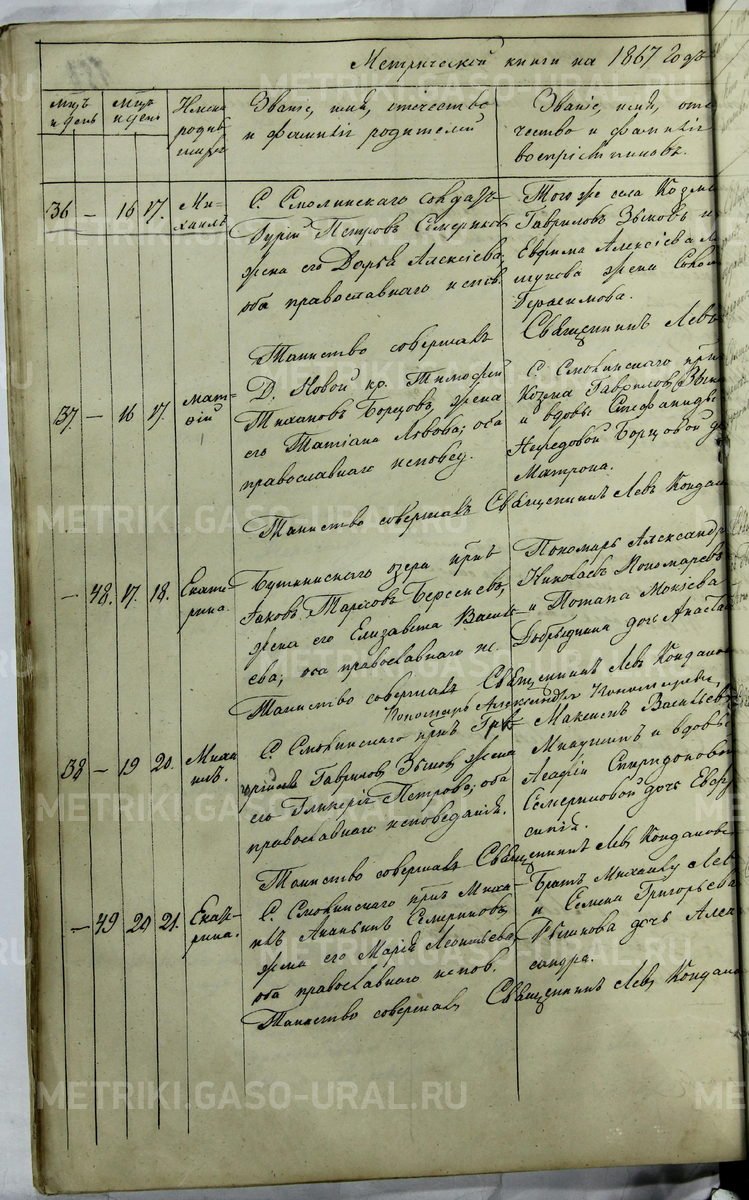 Метрической книги на 1867 годъ
мцъ и день
мцъ и день
Имена родив
Званіе, имя, отечество
и фамиліи родителей
Званіе, имя, оте
чество и фамиліи
воспріемниковъ.
36 — 16 17. Ми-
хаилъ
С. Смолинскаго солдатъ
Гурій Петровъ Семериковъ
жена его Дарья Алексіева,
оба православнаго испов.
Того же села Козма
Гавриловъ Зыковъ и
Алексіева
жена
Герасимова.
Таинство совершалъ
Священникъ Левъ
37. — 16 17. Мат-
ѳій
Д. Новой кр. Тимоѳей
Борцовъ, жена
его Татіана Львова; оба
православнаго исповед.
С. Смолинскаго
Козма Гавриловъ Зык
и вдовы Стефаниды
Борцовой д
Матрона.
Таинство совершалъ Священникъ Левъ Кондаков
— 48. 17. 18. Екате-
рина.
озера
Іаковъ Тарасовъ Берсеневъ,
жена его Елизавета Василь
ева; оба православнаго ис.
Пономарь Александръ
Николаевъ Пономаревъ
и Потапа Мокіева
дочь Анаста
Таинство совершалъ Священникъ Левъ Кондаков
Пономарь Александръ Пономаревъ
38 — 19 20. Миха
илъ.
С. Смолинскаго
Гавриловъ Зыковъ жена
его Гликерія Петрова; оба
православнаго исповеданія.
Максимъ Васильевъ
и вдовы
Агафіи Спиридоновой
Семериковой дочь Евдо
Таинство совершалъ Священникъ Левъ Кондаковъ
— 49 20 21. Екате-
рина.
С. Смолинскаго Миха-
илъ Ананьинъ Семериковъ,
жена его Марія Леонтьева,
оба православнаго испов.
Братъ Михаилу Левъ
и Семена Григорьева
дочь Алек
сандра.
Таинство совершалъ Священникъ Левъ Кондаков
METRIKI.GASO-URAL.RU